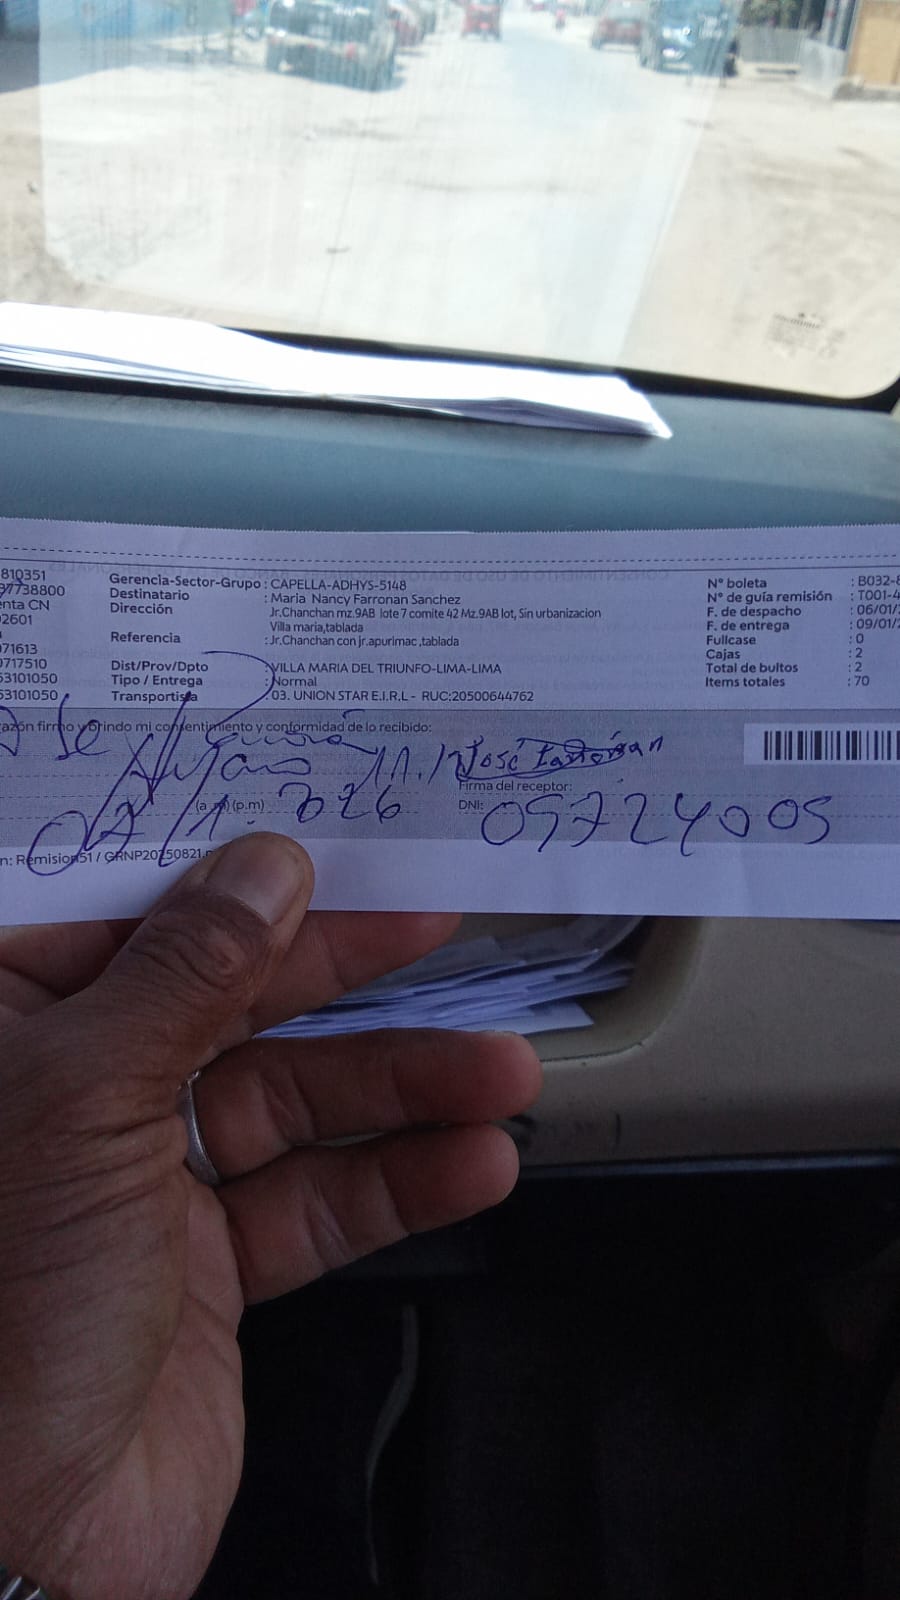 810351
37738800
enta CN
2601
71613
0717510
53101050
53101050
Gerencia-Sector-Grupo : CAPELLA-ADHYS-5148
Destinatario : Maria Nancy Farronan Sanchez
Dirección : Jr.Chanchan mz.9AB lote 7 comite 42 Mz.9AB lot, Sin urbanizacion
Villa maria,tablada
Referencia : Jr.Chanchan con jr.apurimac ,tablada
Dist/Prov/Dpto : VILLA MARIA DEL TRIUNFO-LIMA-LIMA
Tipo / Entrega : Normal
Transportista : 03. UNION STAR E.I.R.L - RUC:20500644762
N° boleta : B032-8
N° de guía remisión : T001-4
F. de despacho : 06/01/
F. de entrega : 09/01/2
Fullcase : 0
Cajas : 2
Total de bultos : 2
Items totales : 70
azón firmo y brindo mi consentimiento y conformidad de lo recibido:
José Farroñan
Firma del receptor:
(a.m) (p.m)
DNI: 09724005
n: Remision51 / GRNP20250821.